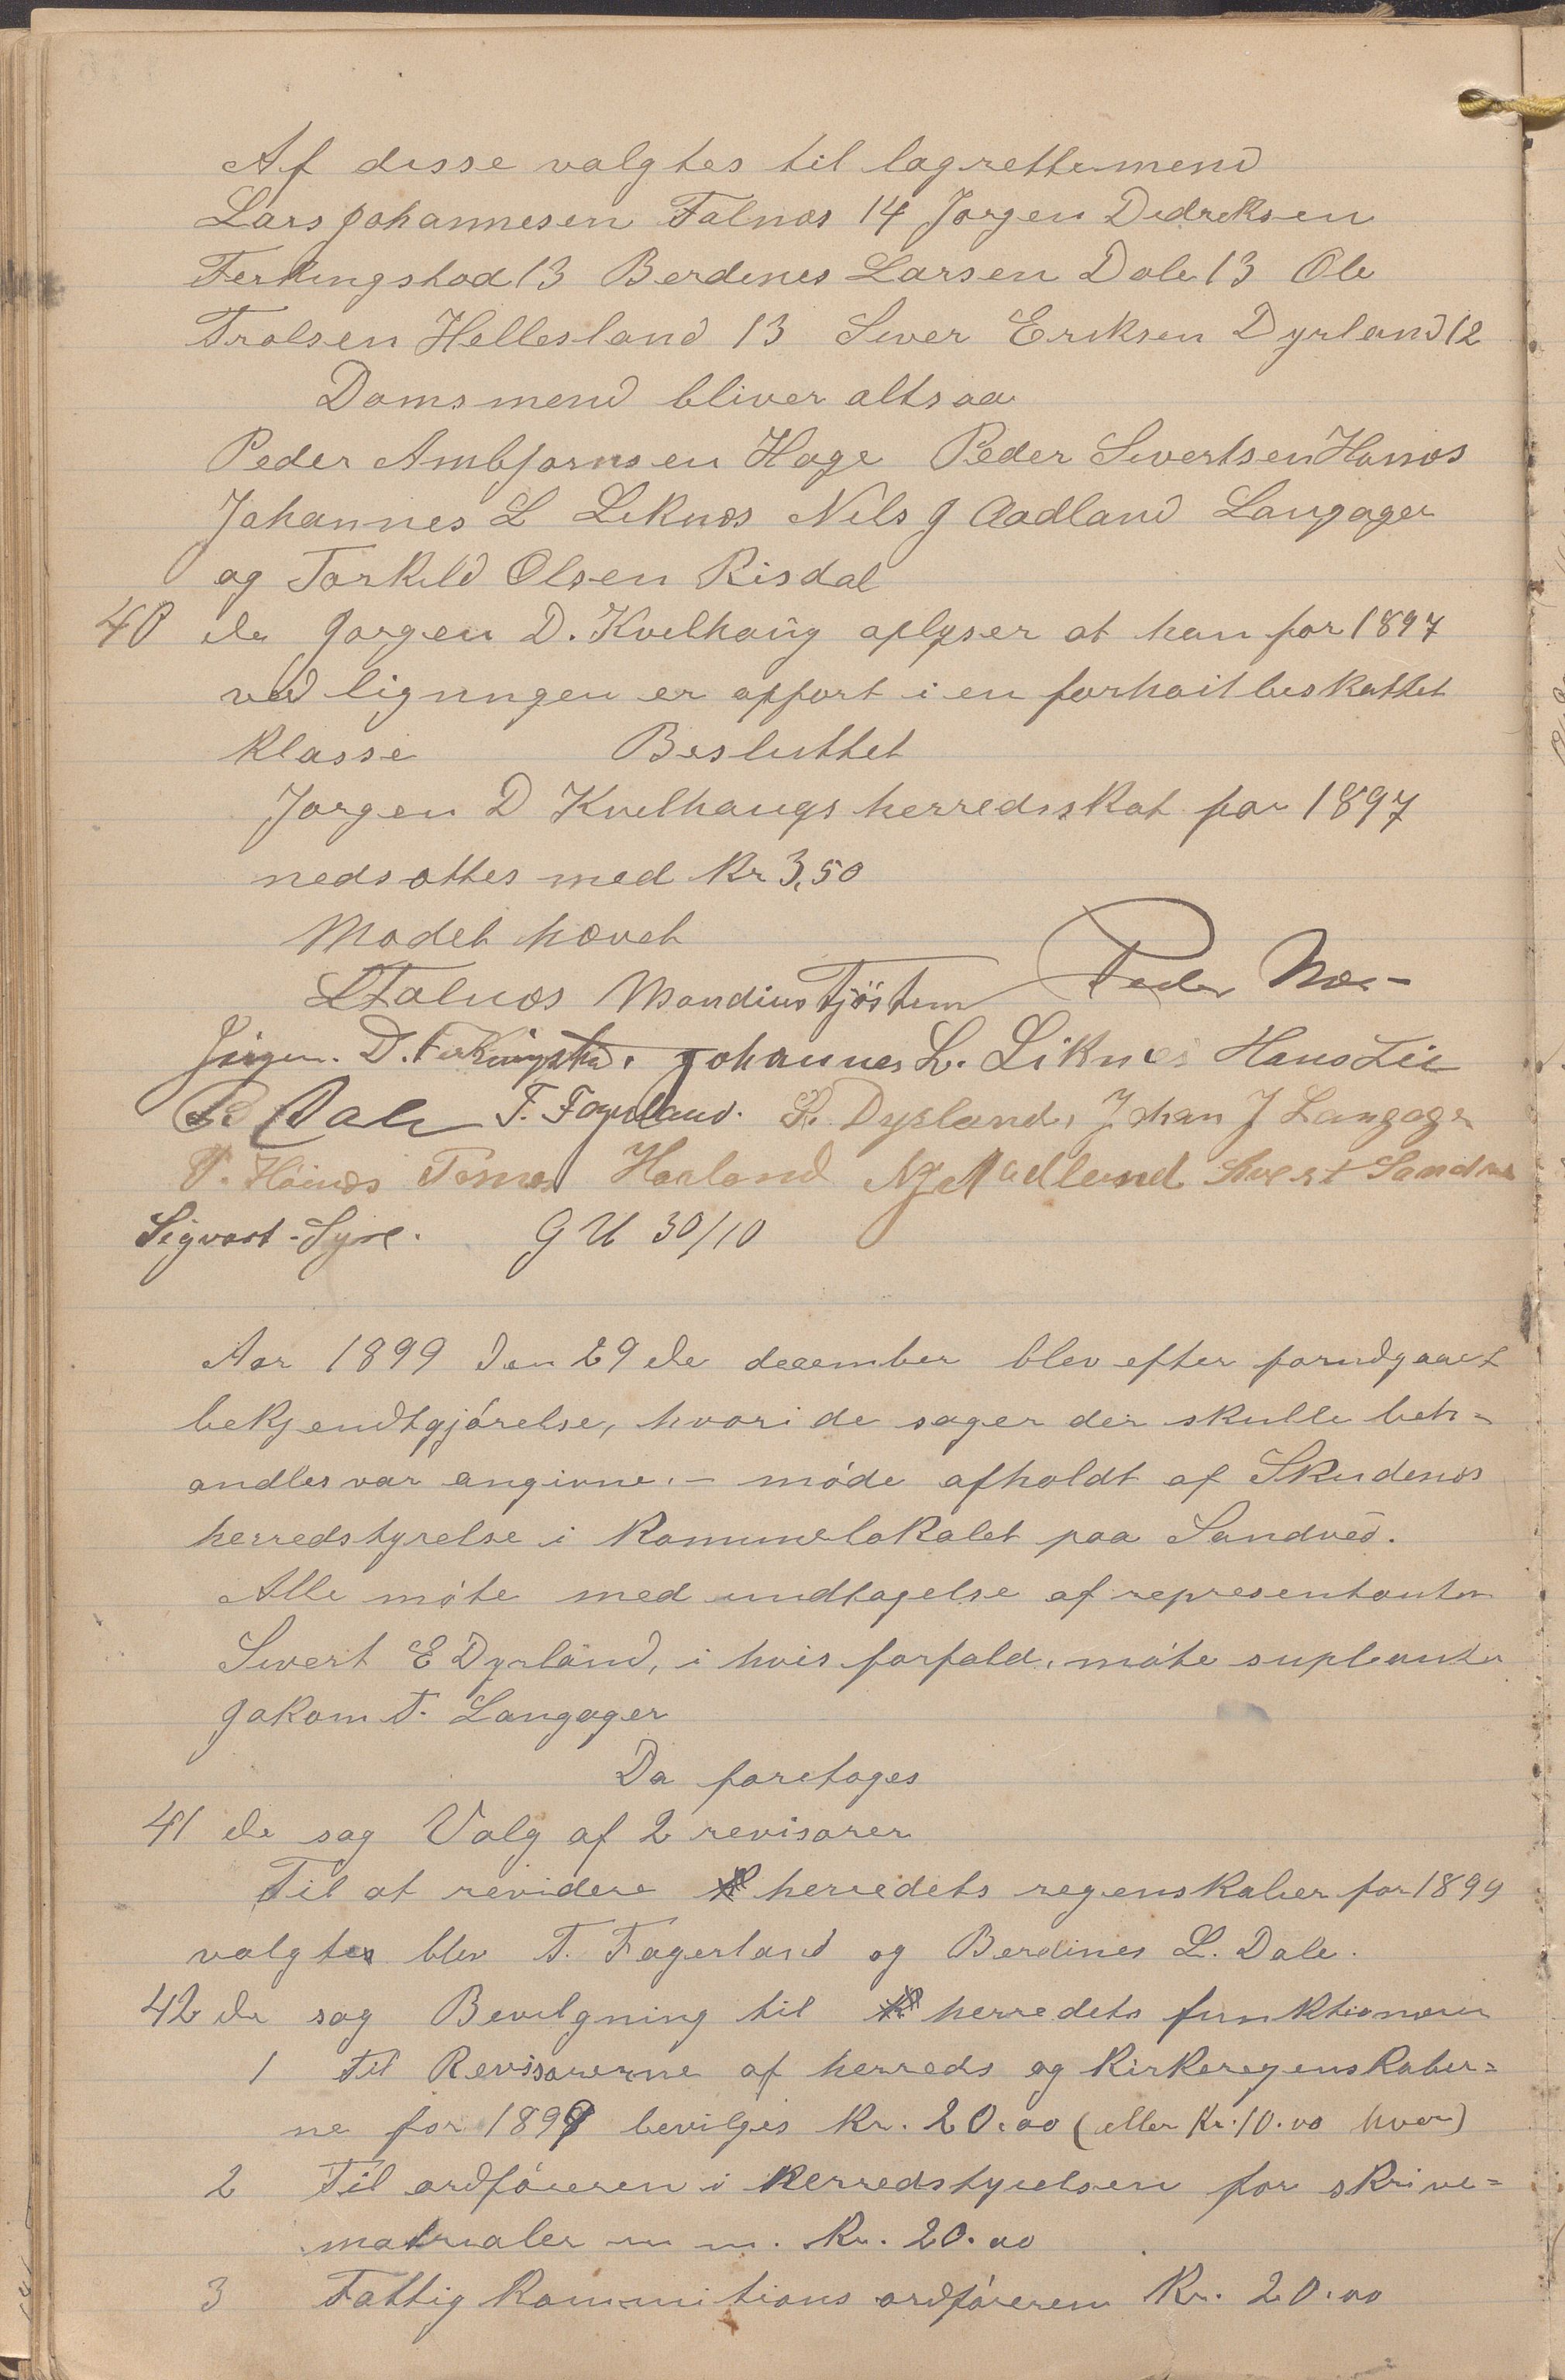 Af disse valgtes til lagrettemend
Lars Johannesen Falnæs 14 Jørgen Didriksen
Ferkingstad 13 Berdines Larsen Dale 13 Ole
Trolsen Hellesland 13 Siver Eriksen Dyrland 12
Domsmend bliver altsaa
Peder Ambjørnsen Hage Peder Sivertsen Hønæs
Johannes L Liknæs Nils J Aadland Langager
og Torkild Olsen Risdal
40 de Jørgen D. Kvilhaug oplyser at han for 1897
ved ligningen er opført i en forhøit beskattet
klasse Besluttet
Jørgen D Kvilhaugs herredsskat for 1897
nedsættes med kr 3,50
Mødet hævet
L Falnæs Mandius Tjøstem Peder
Jørgen. D. Ferkingstad. Johannes L. Liknes Hans Lie
B Dale T. Fagerland. S. Dyrland, Johan J Langager
P. Høinæs Tomas Harland N J Aadland Sivert Sandve
Sigvart Syre. G U 30/10
Aar 1899 den 29 de december blev efter forudgaaet
bekjendtgjørelse, hvori de sager der skulle beh-
andles var angivne. – møde afholdt af Skudenæs
herredstyrelse i komunelokalet paa Sandved.
Alle møte med undtagelse af representanten
Sivert E Dyrland, i hvis forfald, møte suplanten
Jakom T. Langager
Da foretoges
41 de sag Valg af 2 revisorer
Til at revidere herredets regenskaber for 1899
valgtes blev T. Fagerland og Berdines L. Dale.
42 de sag Bevilgning til herredets funktionærer
1 Til Revisorerne af herreds og kirkeregenskaber=
ne for 1899 bevilges kr. 20.00 (eller kr. 10.00 hver)
2 Til ordføreren i herredstyrelsen for skrive=
matrialer m m. kr. 20.00
3 Fattigkommitions ordføreren kr. 20.00